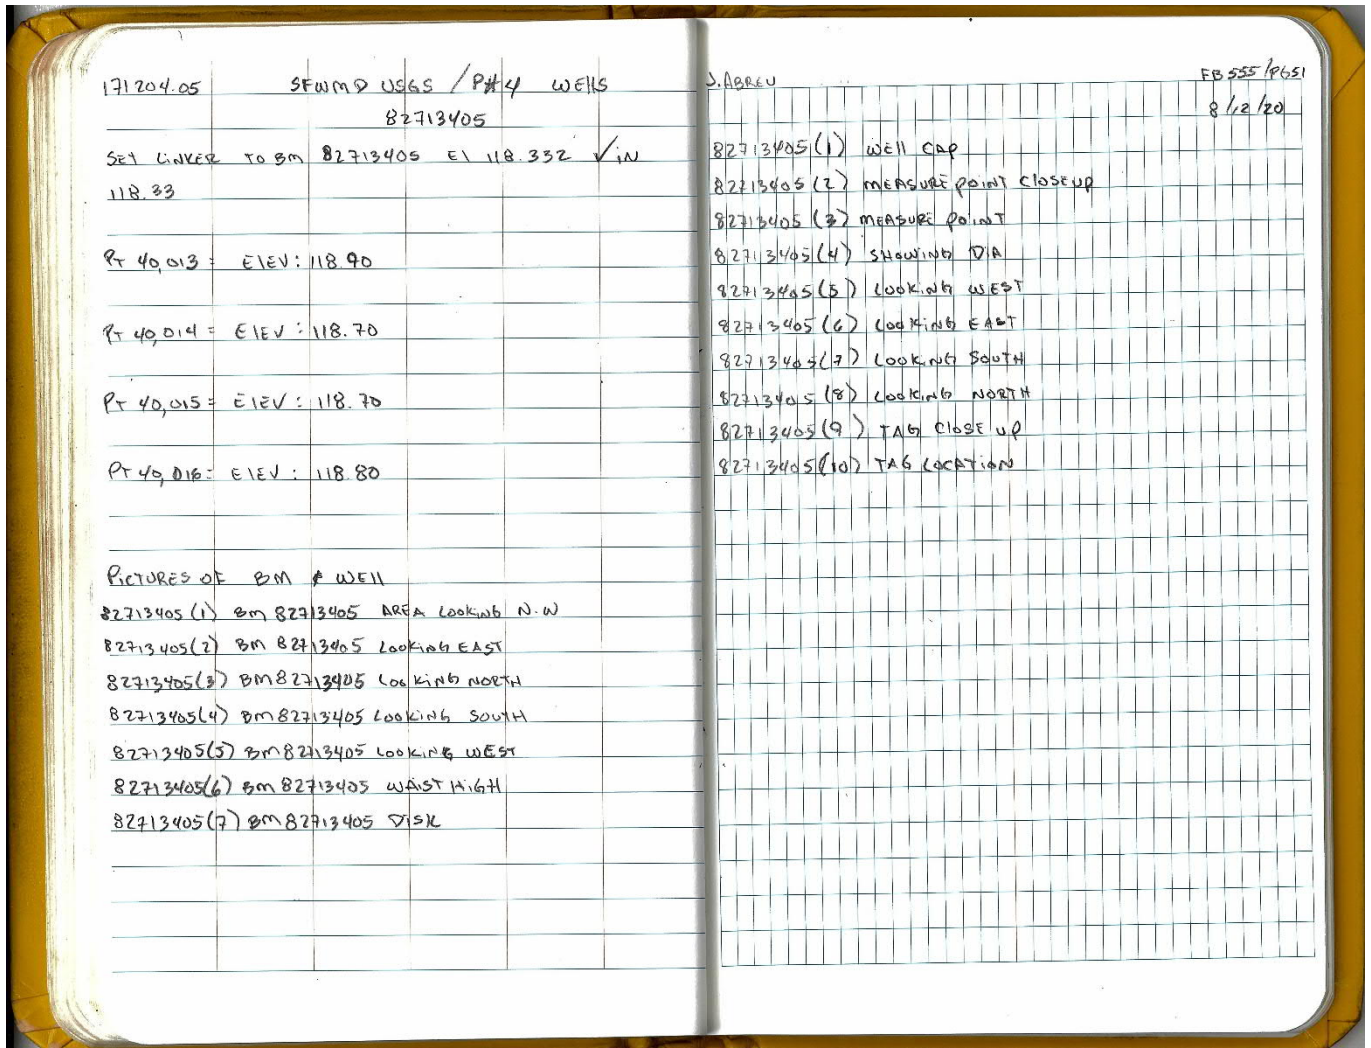 171204.05 SFWMD USGS / PH 4 WEllS
82713405
SET LINKER TO BM 82713405 El 118.332 ✓ iN
118.33
PT 40,013 = ElEV: 118.90
PT 40,014 = ElEV: 118.70
PT 40,015 = ElEV: 118.70
PT 40,016 = ElEV: 118.80
PiCTURES OF BM & WEll
82713405 (1) BM 82713405 AREA LOOKiNG N.W
82713405(2) BM 82713405 LOOKiNG EAST
82713405(3) BM 82713405 LOOKiNG NORTH
82713405(4) BM 82713405 LOOKiNG SOUTH
82713405(5) BM 82713405 LOOKiNG WEST
82713405(6) BM 82713405 WAiST HiGH
82713405(7) BM 82713405 DiSK
J. ABREU FB 555/PG51
8/12/20
82713405(1) WEll CAP
82713405(2) MEASURE POiNT ClOSE UP
82713405(3) MEASURE POiNT
82713405(4) SHOWiNG DiA
82713405(5) LOOKiNG WEST
82713405(6) LOOKiNG EAST
82713405(7) LOOKiNG SOUTH
82713405(8) LOOKiNG NORTH
82713405(9) TAG ClOSE UP
82713405(10) TAG LOCATiON